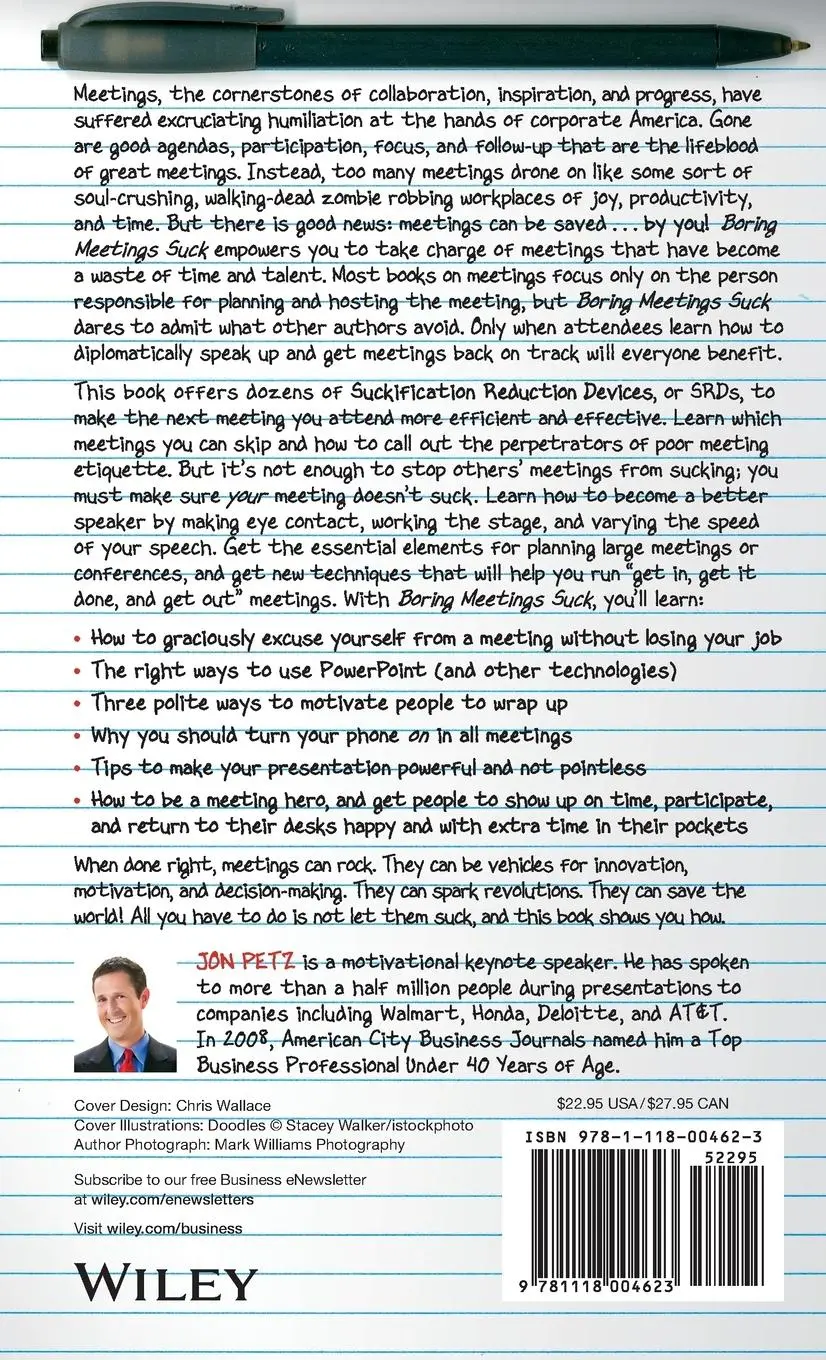 Meetings, the cornerstones of collaboration, inspiration, and progress, have
suffered excruciating humiliation at the hands of corporate America. Gone
are good agendas, participation, focus, and follow-up that are the lifeblood
of great meetings. Instead, too many meetings drone on like some sort of
soul-crushing, walking-dead zombie robbing workplaces of joy, productivity,
and time. But there is good news: meetings can be saved ... by you! Boring
Meetings Suck empowers you to take charge of meetings that have become
a waste of time and talent. Most books on meetings focus only on the person
responsible for planning and hosting the meeting, but Boring Meetings Suck
dares to admit what other authors avoid. Only when attendees learn how to
diplomatically speak up and get meetings back on track will everyone benefit.
This book offers dozens of Suckification Reduction Devices, or SRDs, to
make the next meeting you attend more efficient and effective. Learn which
meetings you can skip and how to call out the perpetrators of poor meeting
etiquette. But it's not enough to stop others' meetings from sucking; you
must make sure your meeting doesn't suck. Learn how to become a better
speaker by making eye contact, working the stage, and varying the speed
of your speech. Get the essential elements for planning large meetings or
conferences, and get new techniques that will help you run "get in, get it
done, and get out" meetings. With Boring Meetings Suck, you'll learn:
• How to graciously excuse yourself from a meeting without losing your job
• The right ways to use PowerPoint (and other technologies)
• Three polite ways to motivate people to wrap up
• Why you should turn your phone on in all meetings
• Tips to make your presentation powerful and not pointless
• How to be a meeting hero, and get people to show up on time, participate,
and return to their desks happy and with extra time in their pockets
When done right, meetings can rock. They can be vehicles for innovation,
motivation, and decision-making. They can spark revolutions. They can save the
world! All you have to do is not let them suck, and this book shows you how.
JON PETZ is a motivational keynote speaker. He has spoken
to more than a half million people during presentations to
companies including Walmart, Honda, Deloitte, and AT&T.
In 2008, American City Business Journals named him a Top
Business Professional Under 40 Years of Age.
Cover Design: Chris Wallace
Cover Illustrations: Doodles © Stacey Walker/istockphoto
Author Photograph: Mark Williams Photography
Subscribe to our free Business eNewsletter
at wiley.com/enewsletters
Visit wiley.com/business
WILEY
$22.95 USA/$27.95 CAN
ISBN 978-1-118-00462-3
52295
9 781118 004623